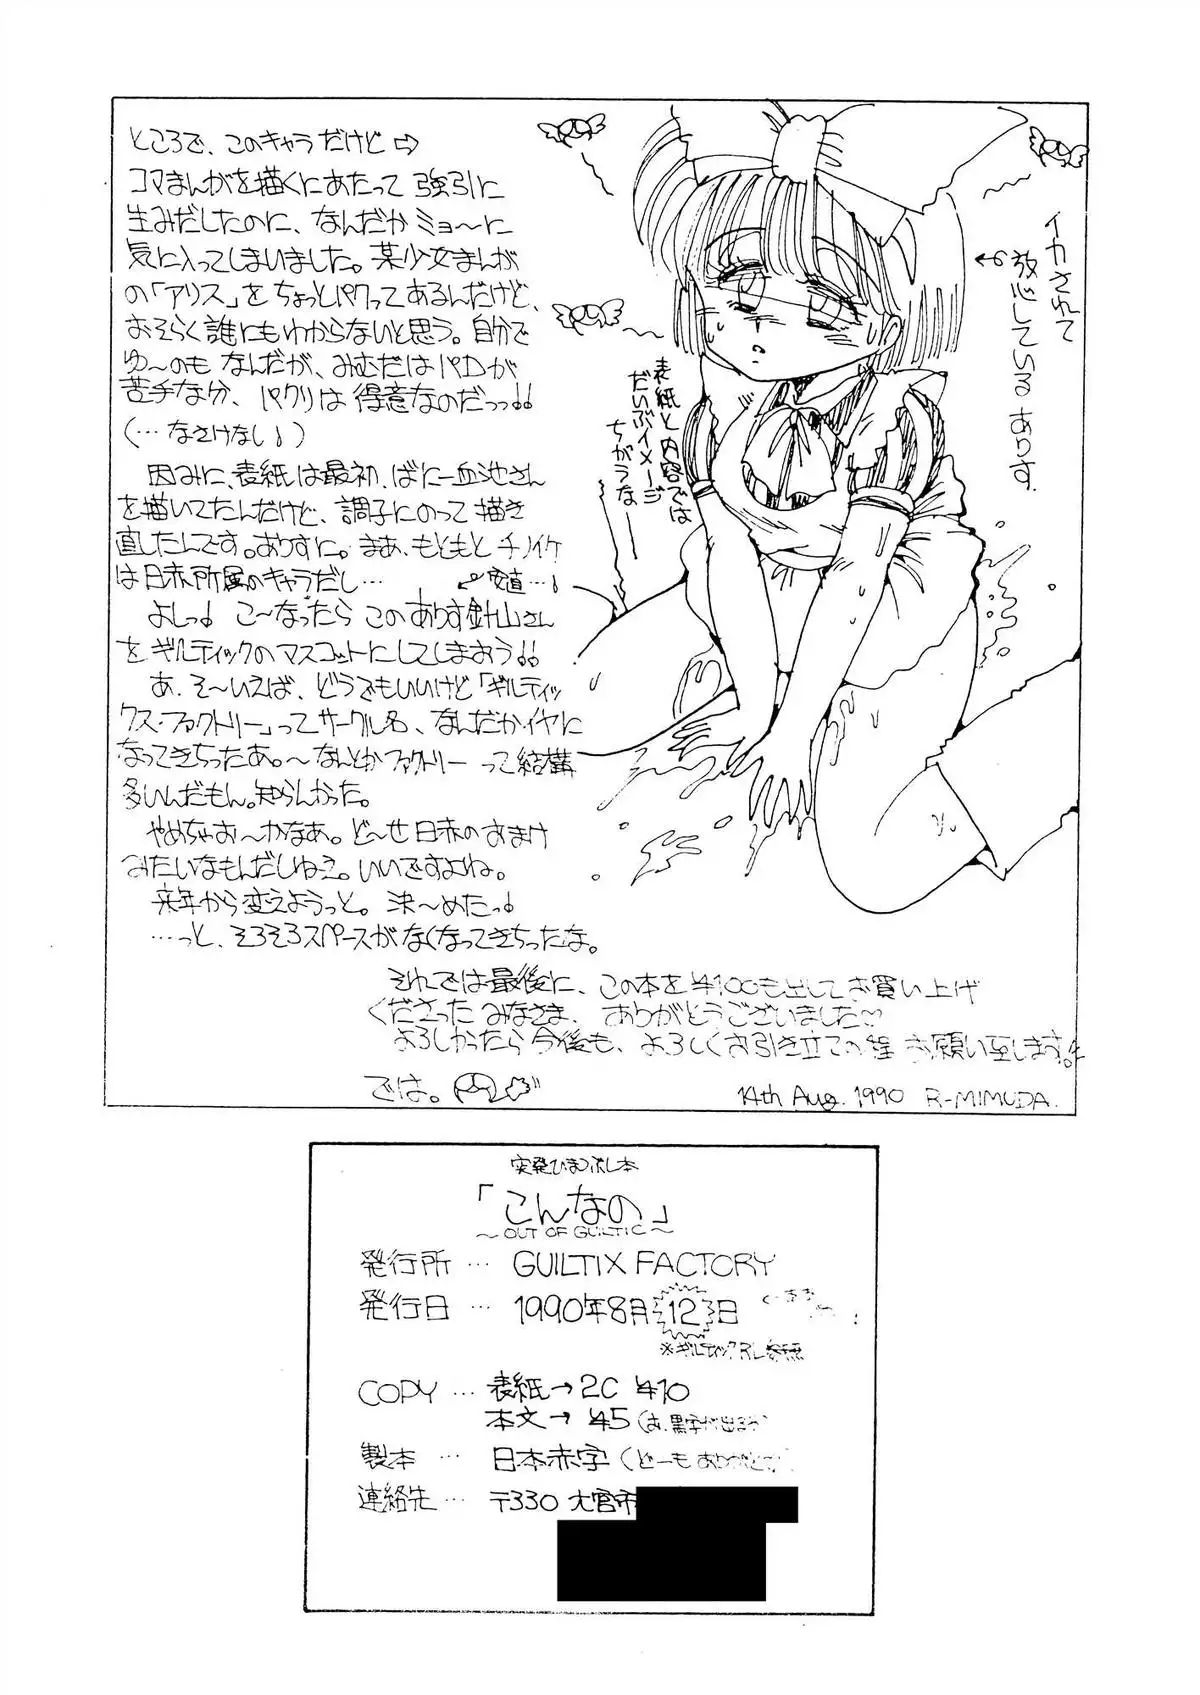 ところで、このキャラだけど⇨
コマまんがを描くにあたって強引に
生みだしたのに、なんだかミョ〜に
気に入ってしまいました。某少女まんが
の「アリス」をちょっとパクってあるんだけど、
おそらく誰にもわからないと思う。自分で
ゆ〜のもなんだが、みむだはパロが
苦手な分、パクリは得意なのだっっ!!
(…なさけない!)
因みに、表紙は最初、ばに一血池さん
を描いてたんだけど、調子にのって描き
直したんです。ありすに。まあ、もともとチノイケ
は日赤所属のキャラだし…
安直…!
よしっ! こ〜なったらこのありす針山さん
をギルティックのマスコットにしてしまおう!!
あ、そ〜いえば、どうでもいいけど「ギルティッ
クス・ファクトリー」ってサークル名、なんだかイヤに
なってきちったあ。〜なんとかファクトリー って結構
多いんだもん。知らんかった。
やめちゃお〜かなあ。ど〜せ日赤のおまけ
みたいなもんだしねえ。いいですよね。
来年から変えようっと。決〜めたっ!
…っと、そろそろスペースがなくなってきちったな。
それでは最後に、この本を¥100も出してお買い上げ
くださったみなさま、ありがとうございました♡
よろしかったら今後も、よろしくお引き立ての程お願い致します。
では。
14th Aug. 1990 R-MIMUDA.
表紙と内容では
だいぶイメージ
ちがうな
突発ひまつぶし本
「こんなの」
〜OUT OF GUILTIC〜
発行所 … GUILTIX FACTORY
発行日 … 1990年8月12日
※ギルティックRL参照
COPY … 表紙→2C ¥10
本文→¥5
製本 … 日本赤字
連絡先 … 〒330 大宮市